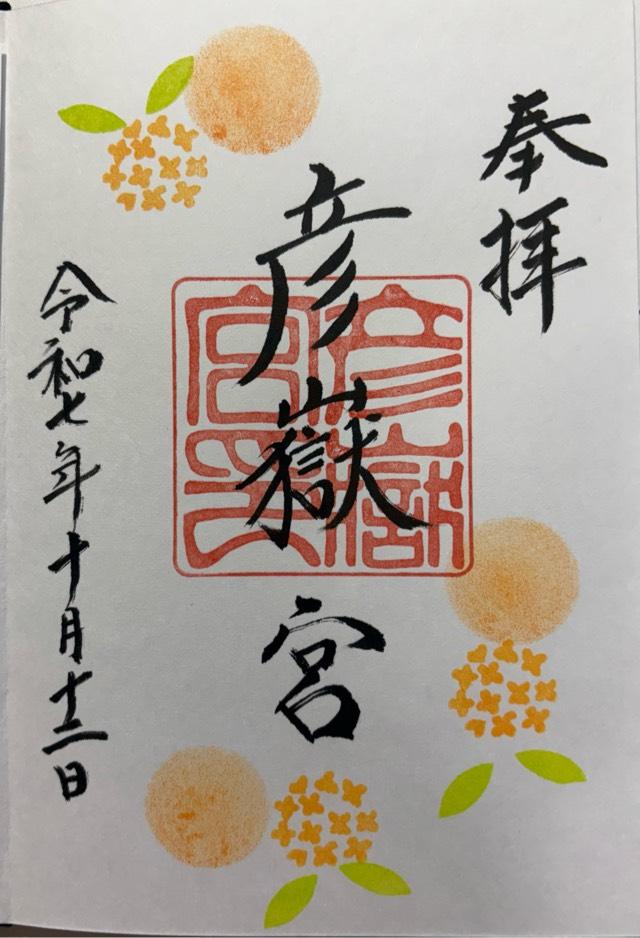 奉拝
彦嶽宮
彦嶽宮印
令和七年十月十二日